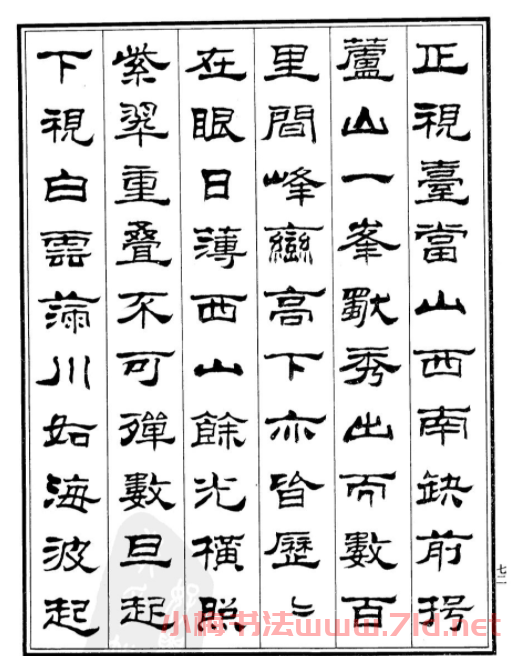 正視臺當山西南缺前揖
蘆山一峯獸秀出而數百
里間峰巒高下亦皆歷〻
在眼日薄西山餘光橫照
紫翠重疊不可殫數旦起
下視白雲滿川如海波起
七二
小楷书法www.71d.net